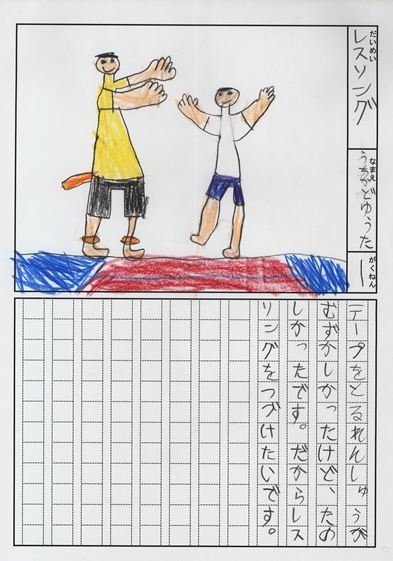 だいめい
レスソング
なまえ
うかどゆうた
がくねん
1
テープをとるれんしゅうが
むずかしかったけど、たの
しかったです。だからレス
リングをつづけたいです。